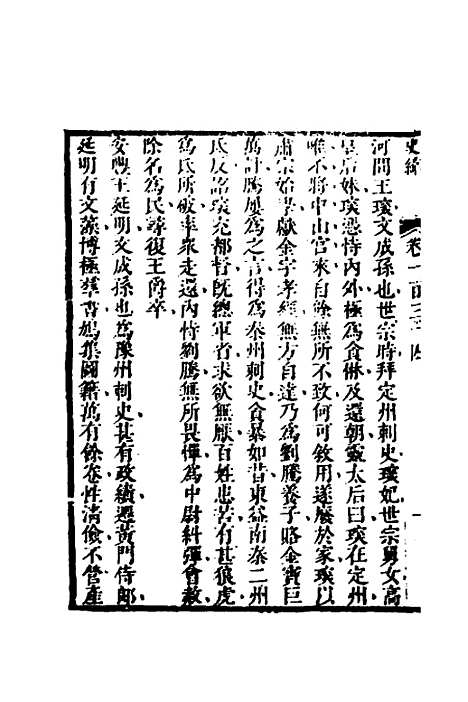 史緯 卷一百三十四 一
河間王琛文成孫也世宗時拜定州刺史琛妃世宗舅女高
皇后妹琛憑恃內外極爲貪惏及還朝靈太后曰琛在定州
唯不將中山宮來自餘無所不致何可敘用遂廢於家琛以
肅宗始學獻金字孝經無方自達乃爲劉騰養子賂金寶巨
萬計騰屢爲之言得爲秦州刺史貪暴如昔東益南秦二州
氐反詔琛充都督旣總軍省求欲無厭百姓患苦有甚狼虎
爲氐所破率衆走還內恃劉騰無所畏憚爲中尉糾彈會赦
除名爲民尋復王爵卒
安豐王延明文成孫也爲豫州刺史甚有政績遷黃門侍郎
延明有文藻博極羣書鳩集圖籍萬有餘卷性清儉不營產